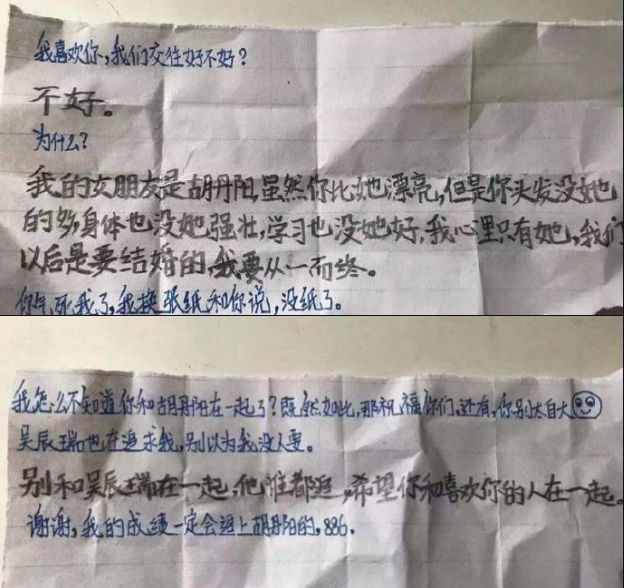 我喜欢你,我们交往好不好?
不好。
为什么?
我的女朋友是胡丹阳,虽然你比她漂亮,但是你头发没她
的多,身体也没她强壮,学习也没她好,我心里只有她,我们
以后是要结婚的,我要从一而终。
你气死我了,我换张纸和你说,没纸了。
我怎么不知道你和胡丹阳在一起了?既然如此,那祝福你们,还有,你别太自大
吴辰瑞也在追求我,别以为我没人要。
别和吴辰瑞在一起,他谁都追,希望你和喜欢你的人在一起。
谢谢,我的成绩一定会追上胡丹阳的,886.